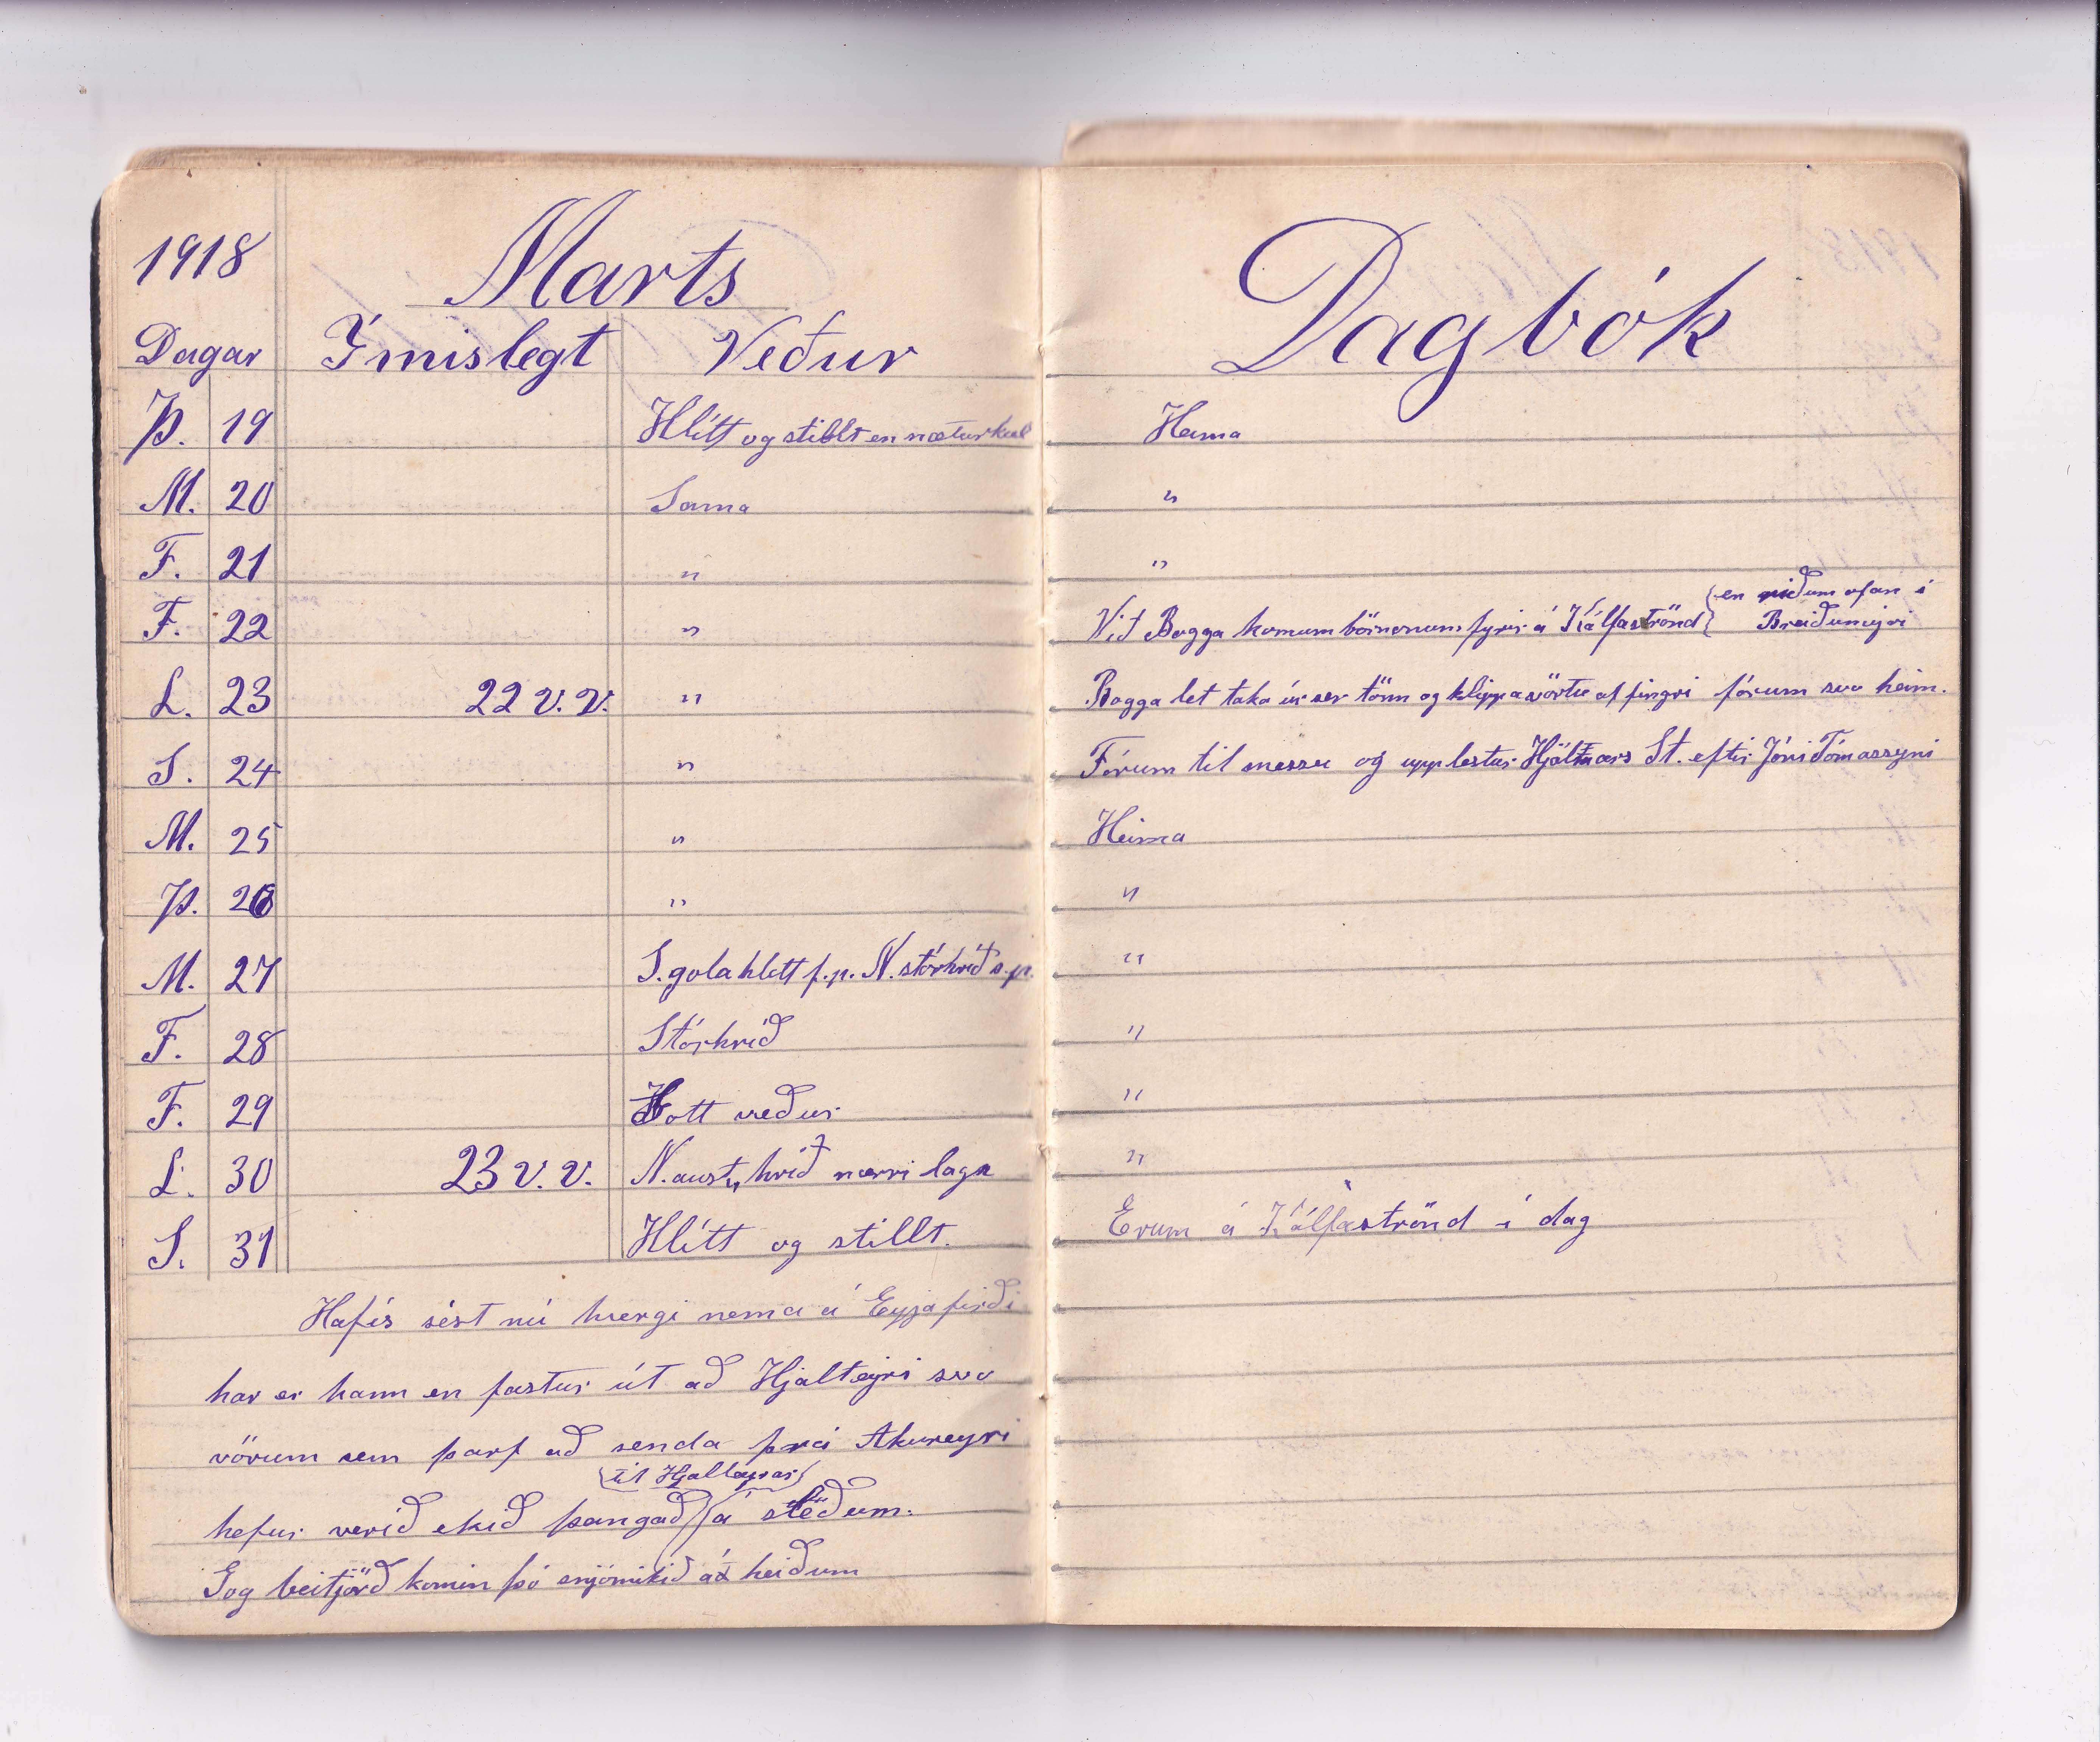 1918 Marts
Dagar Ýmislegt Veður
Þ. 19 Hlítt og stillt en næturkul
M. 20 Sama
F. 21 "
F. 22 "
L. 23 22 v. v. "
S. 24 "
M. 25 "
Þ. 26 "
M. 27 S. gola hlítt f.p. N. stórhríð s.p.
F. 28 Stórhríð
F. 29 Gott veður
L. 30 23 v. v. N. aust, hríð nærri laga
S. 31 Hlítt og stillt.
Hafís sést nú hvergi nema á Eyjafirði
har er hann en fastur út að Hjalteyri svo
vörum sem þarf að senda frá Akureyri
(til Hjalteyrar)
hefur verið ekið þangað á sleðum.
Gog beitjörð komin þó snjómikið á heiðum
Dagbók
Heima
"
"
en riðum ofan í
Við Bogga komum börnonum fyrir á Kálfaströnd Breiðumýri
Bogga let taka úr ser tönn og klippa vörtu af fingri fórum svo heim.
Fórum til messu og upplestur Hjálmars St. eftir Jóni Tómassyni
Heima
"
"
"
"
"
Erum á Kálfaströnd í dag